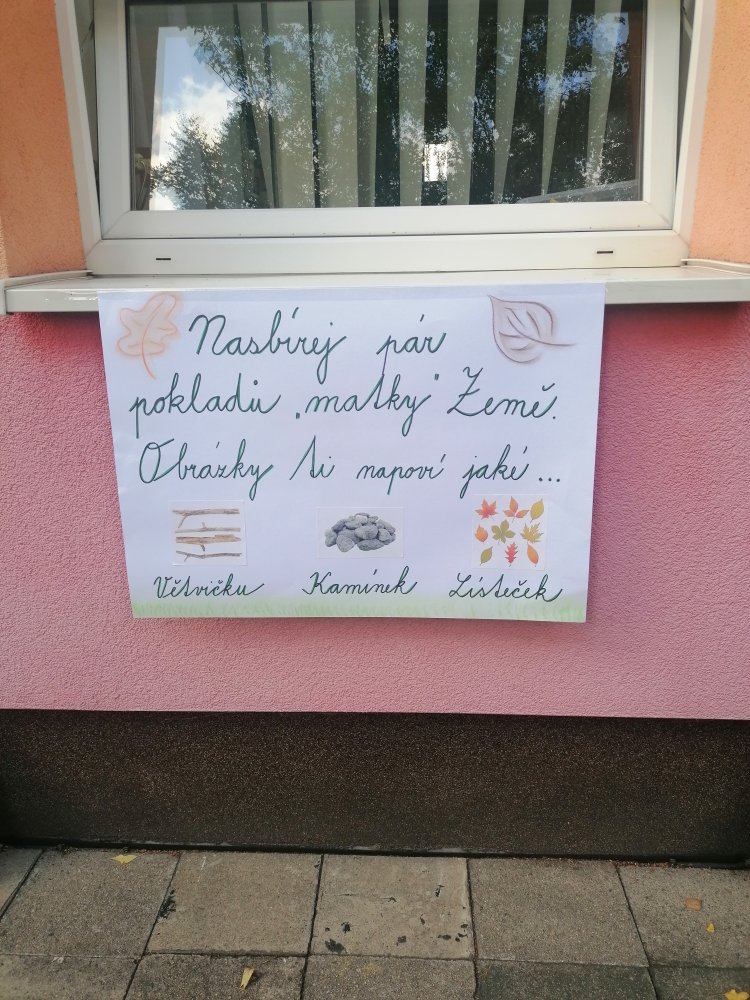 Nasbírej pár
pokladů „matky" Země.
Obrázky ti napoví jaké...
Větvičku Kamínek Lísteček